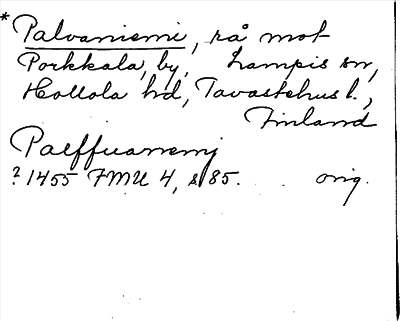 * Palvaniemi, rå mot
Porkkala, by, Lampis sn,
Hollola hd, Tavastehus l.,
Finland
Palffuanemj
? 1455 FMU 4, s 85. orig.